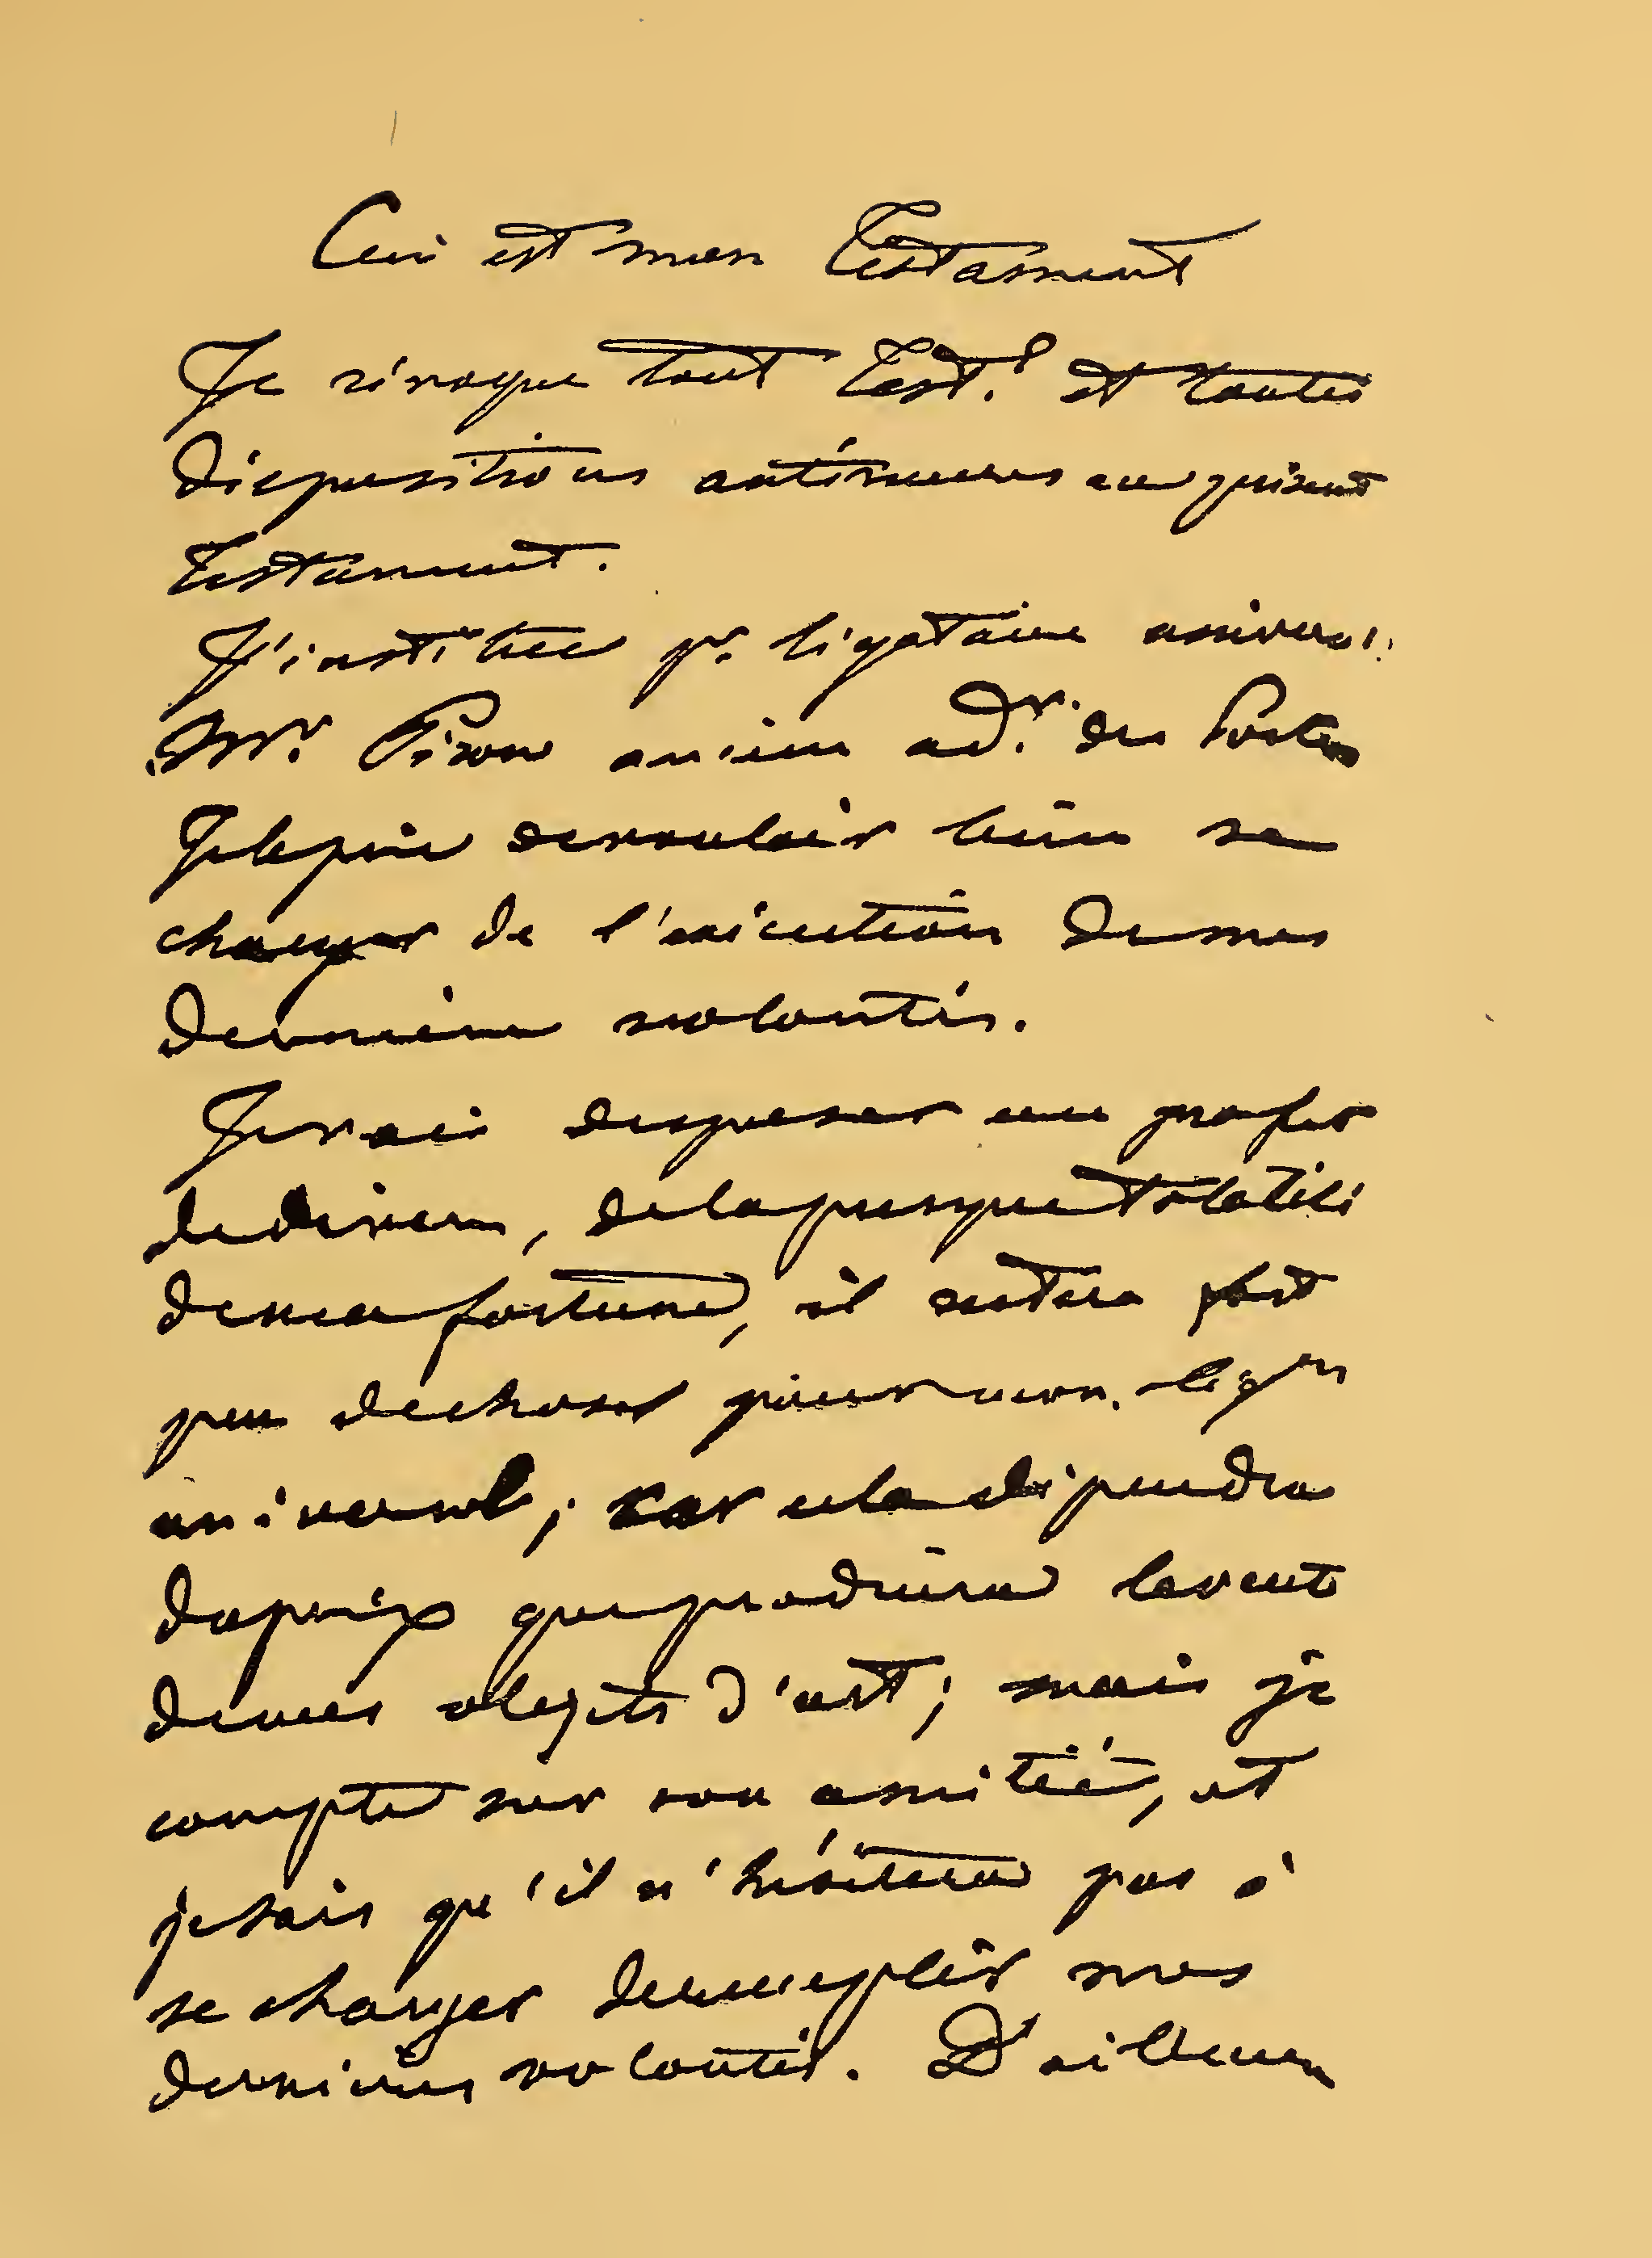 Ceci est mon Testament
Je révoque tout Test.t et toutes
dispositions antérieures au présent
Testament.
J'institue pr. légataire univers.
Mr. Piron ancien adr. des Postes
Je le prie de vouloir bien se
charger de l'exécution de mes
dernières volontés.
Je vais disposer au profit
de divers, de la presque totalité
de ma fortune, il restera fort
peu de chose pour mon légre
universel; car cela dépendra
du prix que produira la vente
de mes objets d'art; mais je
compte sur son amitié, et
je sais qu'il n'hésitera pas à
se charger de remplir mes
dernières volontés. D'ailleurs